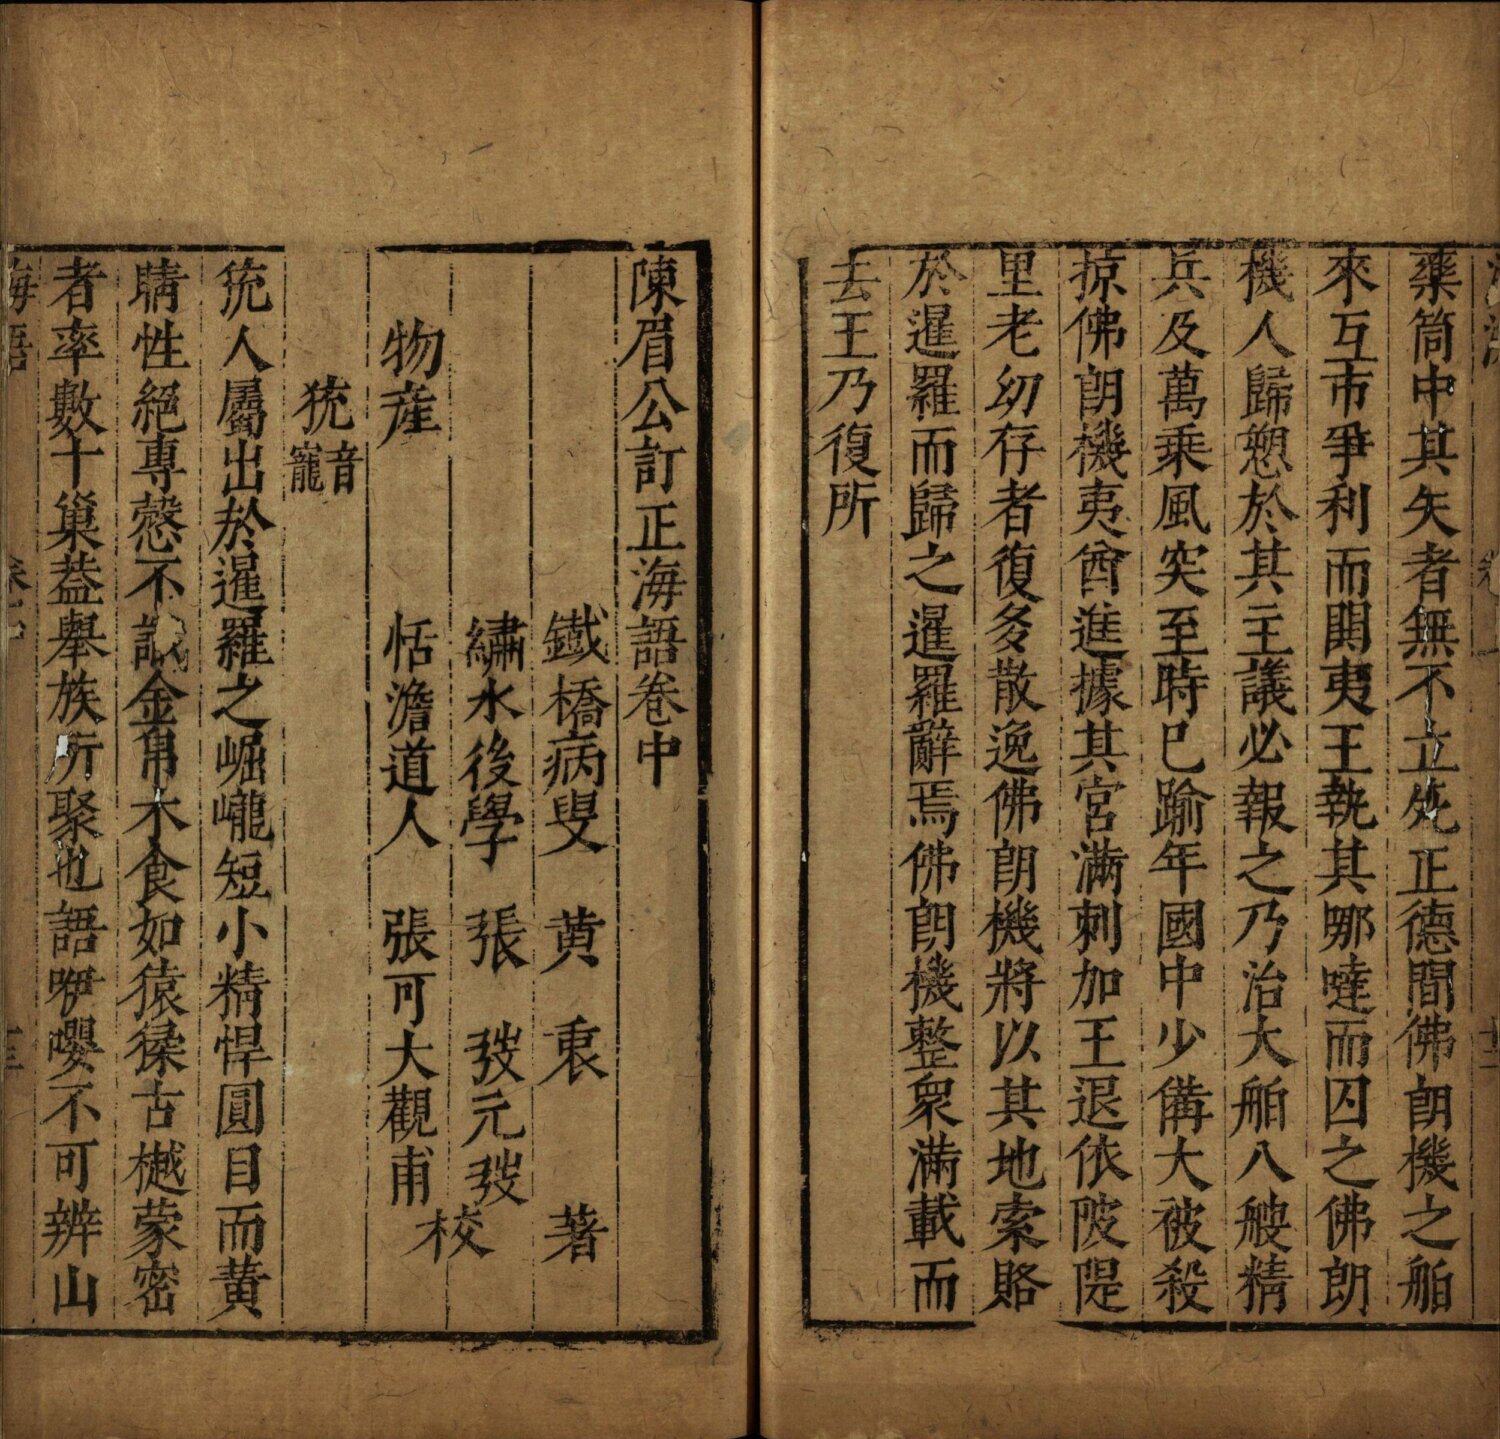 藥筒中其矢者無不立死正德間佛朗機之舶
來互市爭利而鬨夷王執其哪噠而囚之佛朗
機人歸愬於其主議必報之乃治大舶八艘精
兵及萬乘風突至時已踰年國中少備大被殺
掠佛朗機夷酋進據其宮滿剌加王退依陂隄
里老幼存者復多散逸佛朗機將以其地索賂
於暹羅而歸之暹羅辭焉佛朗機整眾滿載而
去王乃復所
陳眉公訂正海語卷中
鐵橋病叟 黃 衷 著
繡水後學 張 發元發
恬澹道人 張可大觀甫 校
物産
㺬 音寵
㺬人屬出於暹羅之崛巄短小精悍圓目而黃
睛性絕專慤不識金帛木食如猿猱古樾蒙密
者率數十巢葢舉族所聚也語咿嚶不可辨山
海語 卷中 十三